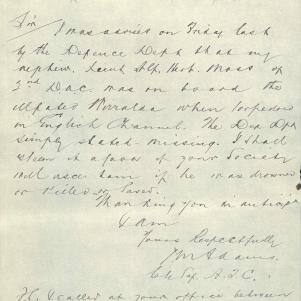 Sir
I was advised on Friday last
by the Defence Dept that my
nephew, Lieut Alf. Herb. Moss of
3rd D.A.C. was on board the
when torpedoed
in English Channel. The Def Dpt
simply stated - missing. I shall
esteem it a favor if your Society
will ascertain if he was drowned
or killed or saved.
Thanking you in anticip
I am
Yours Respectfully
Adams.
P.S. I called at your office between